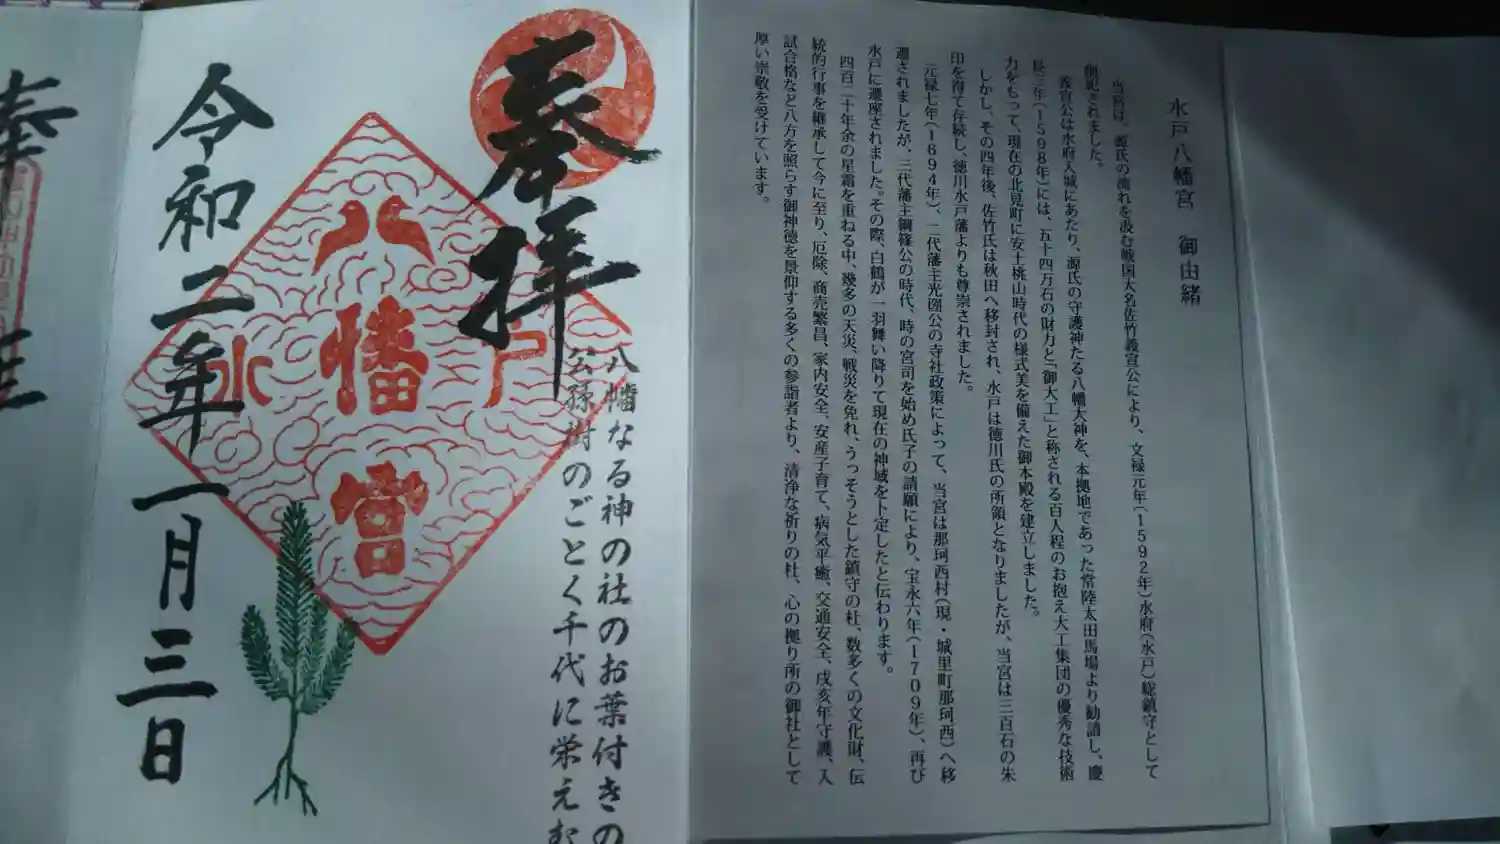 水戸八幡宮　御由緒
当宮は、源氏の流れを汲む戦国大名佐竹義宣公により、文禄元年(1592年)水府(水戸)総鎮守として
創祀されました。
義宣公は水府入城にあたり、源氏の守護神たる八幡大神を、本拠地であった常陸太田馬場より勧請し、慶
長三年(1598年)には、五十四万石の財力と「御大工」と称される百人程のお抱え大工集団の優秀な技術
力をもって、現在の北見町に安土桃山時代の様式美を備えた御本殿を建立しました。
しかし、その四年後、佐竹氏は秋田へ移封され、水戸は徳川氏の所領となりましたが、当宮は三百石の朱
印を得て存続し、徳川水戸藩よりも尊崇されました。
元禄七年(1694年)、二代藩主光圀公の寺社政策によって、当宮は那珂西村(現・城里町那珂西)へ移
遷されましたが、三代藩主綱篠公の時代、時の宮司を始め氏子の請願により、宝永六年(1709年)、再び
水戸に遷座されました。その際、白鶴が一羽舞い降りて現在の神域を卜定したと伝わります。
四百二十年余の星霜を重ねる中、幾多の天災、戦災を免れ、うっそうとした鎮守の杜、数多くの文化財、伝
統的行事を継承して今に至り、厄除、商売繁昌、家内安全、安産子育て、病気平癒、交通安全、戌亥年守護、入
試合格など八方を照らす御神徳を景仰する多くの参詣者より、清浄な祈りの杜、心の拠り所の御社として
厚い崇敬を受けています。
奉拝
八幡なる神の社のお葉付きの
公孫樹のごとく千代に栄えむ
八幡宮
水戸
令和二年一月三日
奉